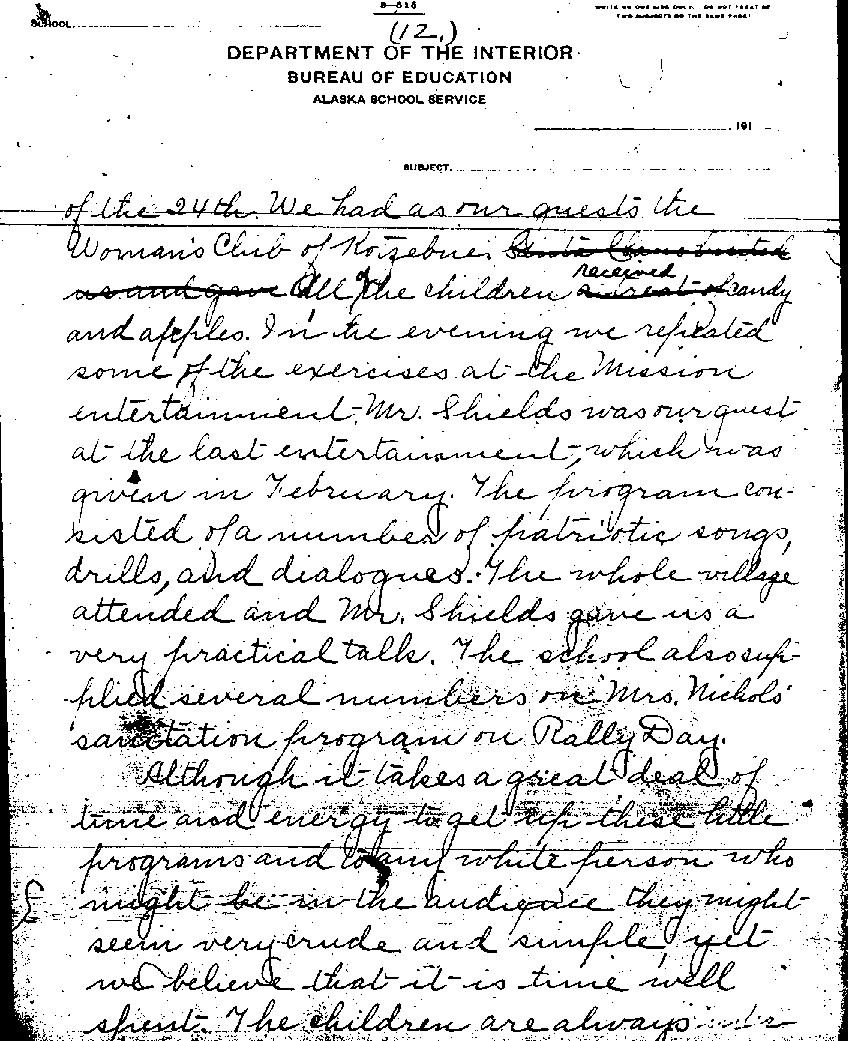 8-515
WRITE ON ONE SIDE ONLY. DO NOT TREAT OF
TWO SUBJECTS ON THE SAME PAGE.
SCHOOL
(12.)
DEPARTMENT OF THE INTERIOR
BUREAU OF EDUCATION
ALASKA SCHOOL SERVICE
191
SUBJECT
of the 24th. We had as our guests the
Woman's Club of Kotzebue. Santa Claus visited
us and gave All of the children a treat of received candy
and apples. In the evening we repeated
some of the exercises at the Mission
entertainment. Mr. Shields was our guest
at the last entertainment, which was
given in February. The program con-
sisted of a number of patriotic songs,
drills, and dialogues. The whole village
attended and Mr. Shields gave us a
very practical talk. The school also sup-
plied several numbers on Mrs. Nichols'
sanitation program on Rally Day.
Although it takes a great deal of
time and energy to get up these little
programs and to any white person who
might be in the audience they might
seem very crude and simple, yet
we believe that it is time well
spent. The children are always